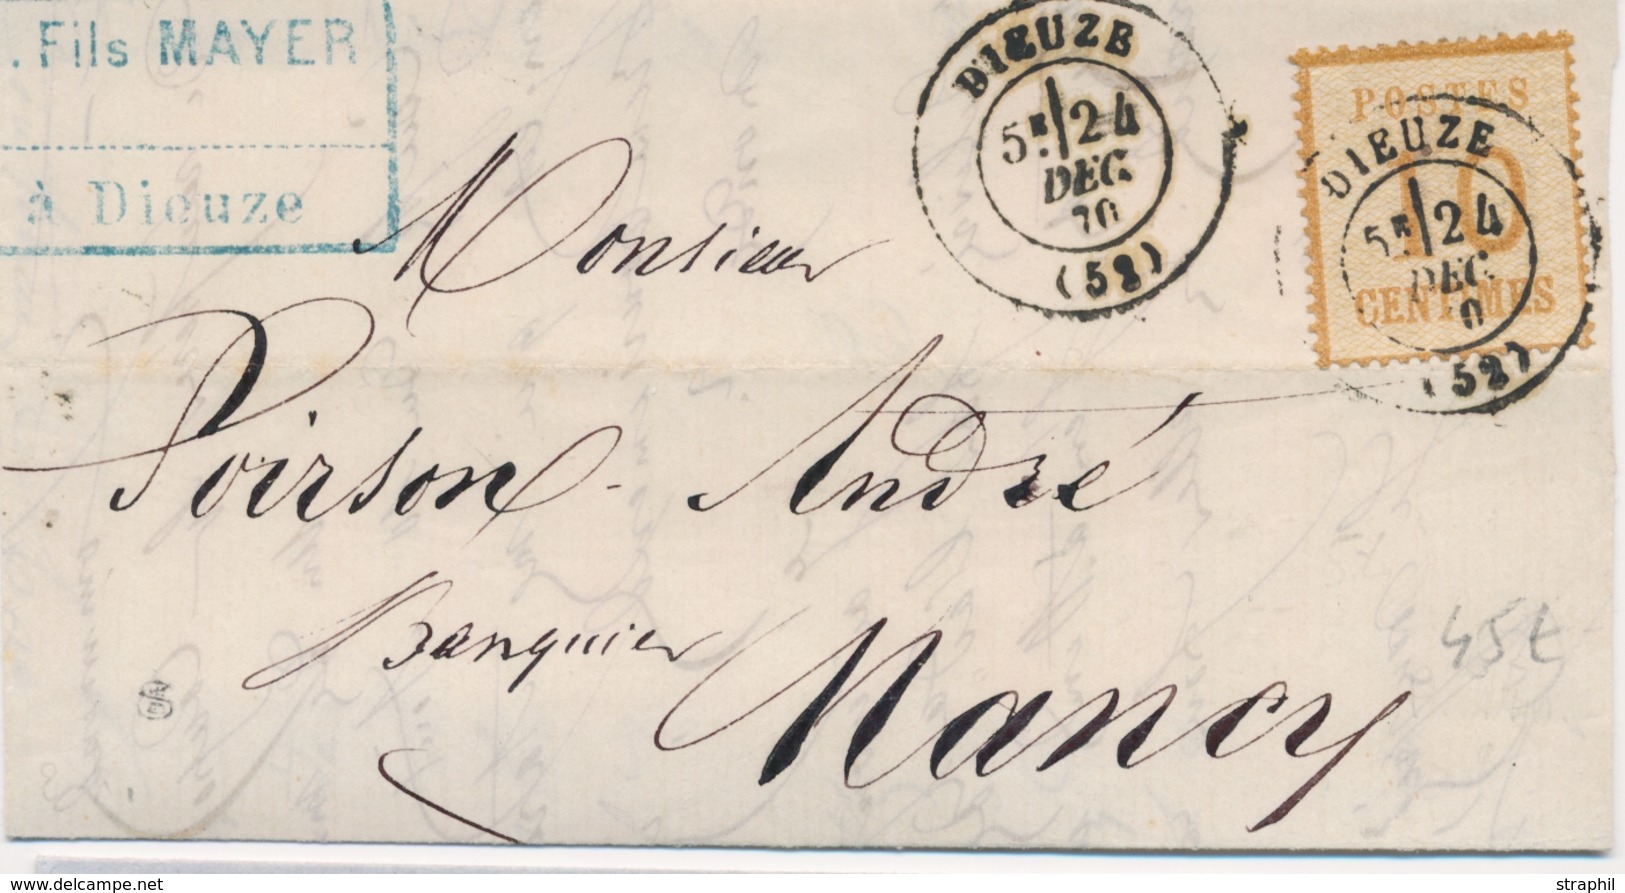 . Fils MAYER
à Dieuze
DIEUZE
5E 24
DEC.
70
(52)
POSTES
10
CENTIMES
DIEUZE
5E 24
DEC.
70
(52)
Monsieur
Poirson André
Banquier
Nancy
45€
www.delcampe.net
straphil